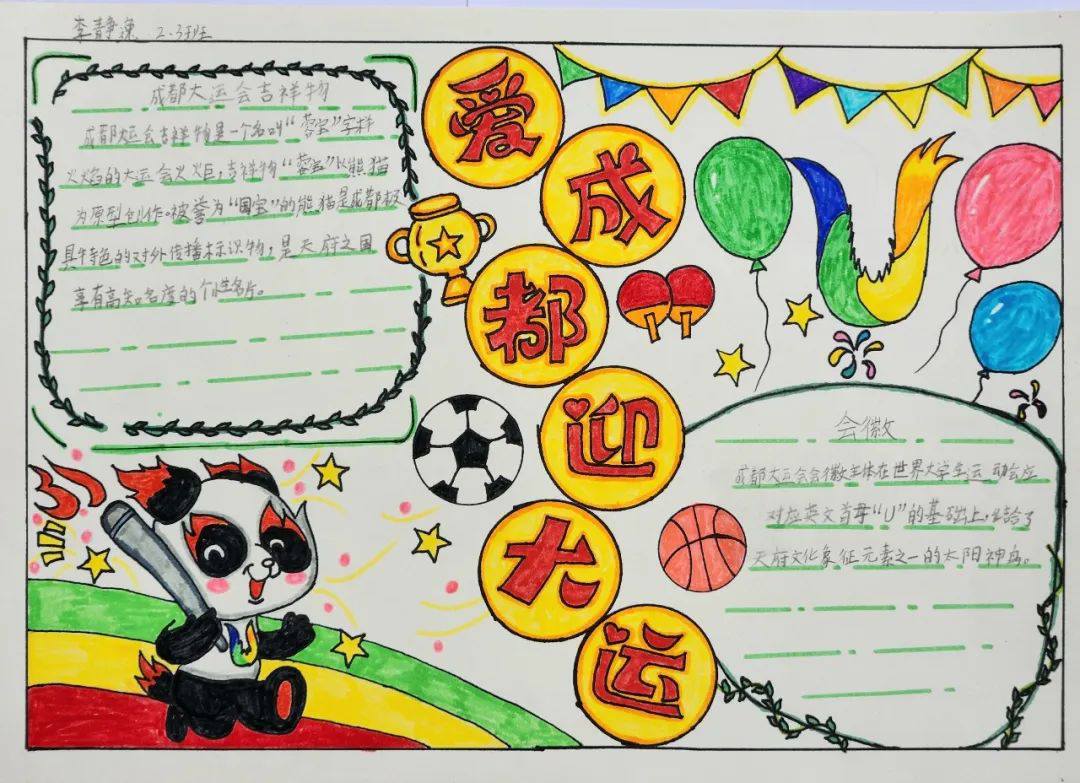 李静涑 2.3班班
成都大运会吉祥物
成都大运会吉祥物是一个名叫“蓉宝”字样
火焰的大运会火炬,吉祥物“蓉宝”以熊猫
为原型创作。被誉为“国宝”的熊猫是成都极
具特色的对外传播标识物,是天府之国
享有高知名度的个性名片。
31
爱
成
都
迎
大
运
会徽
成都大运会会徽主体在世界大学生运动会应
对应英文首母“U”的基础上,结合了
天府文化象征元素之一的太阳神鸟。